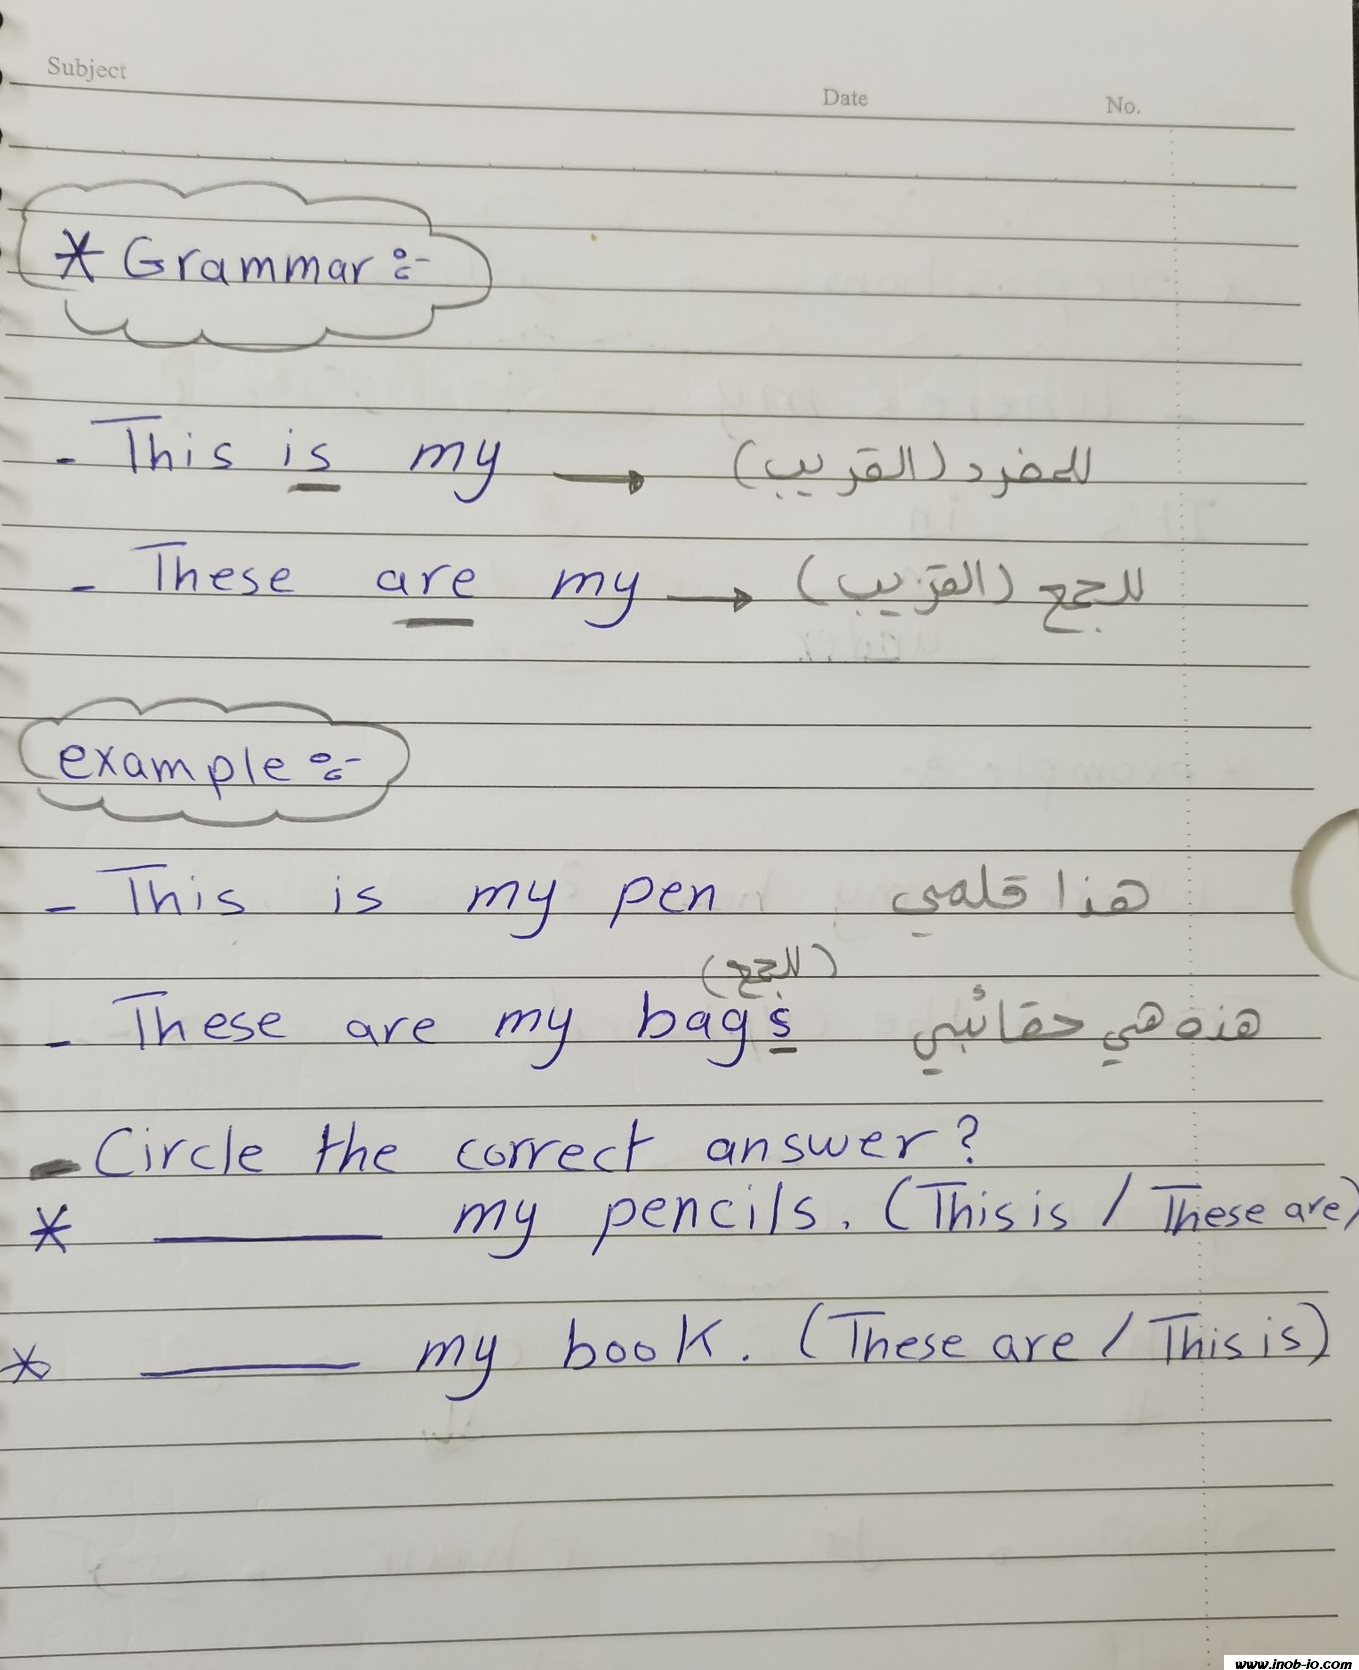 Subject
Date No.
* Grammar :-
- This is my → للمفرد (القريب)
- These are my → للجمع (القريب)
example :-
- This is my pen هذا قلمي
(للجمع)
- These are my bags هذه هي حقائبي
- Circle the correct answer?
* ________ my pencils. (This is / These are)
* ________ my book. (These are / This is)
www.jnob-jo.com